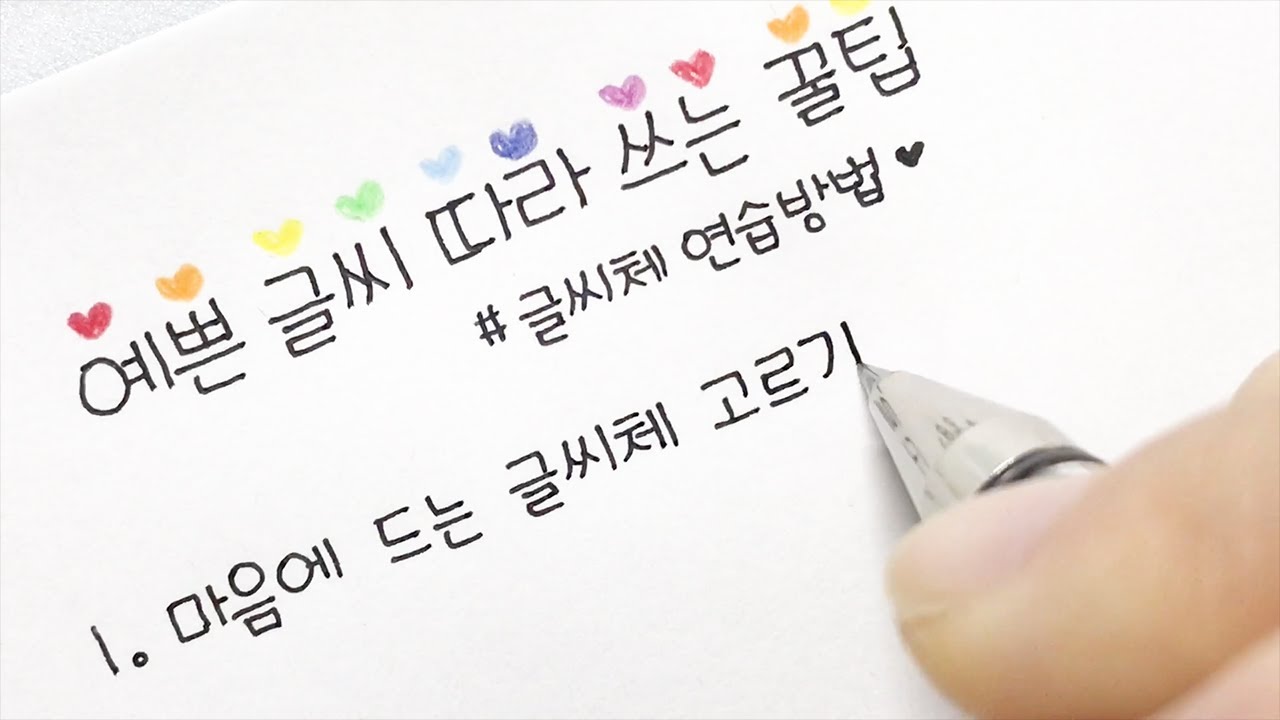 예쁜 글씨 따라 쓰는 꿀팁
# 글씨체 연습방법 ♥
1. 마음에 드는 글씨체 고르기